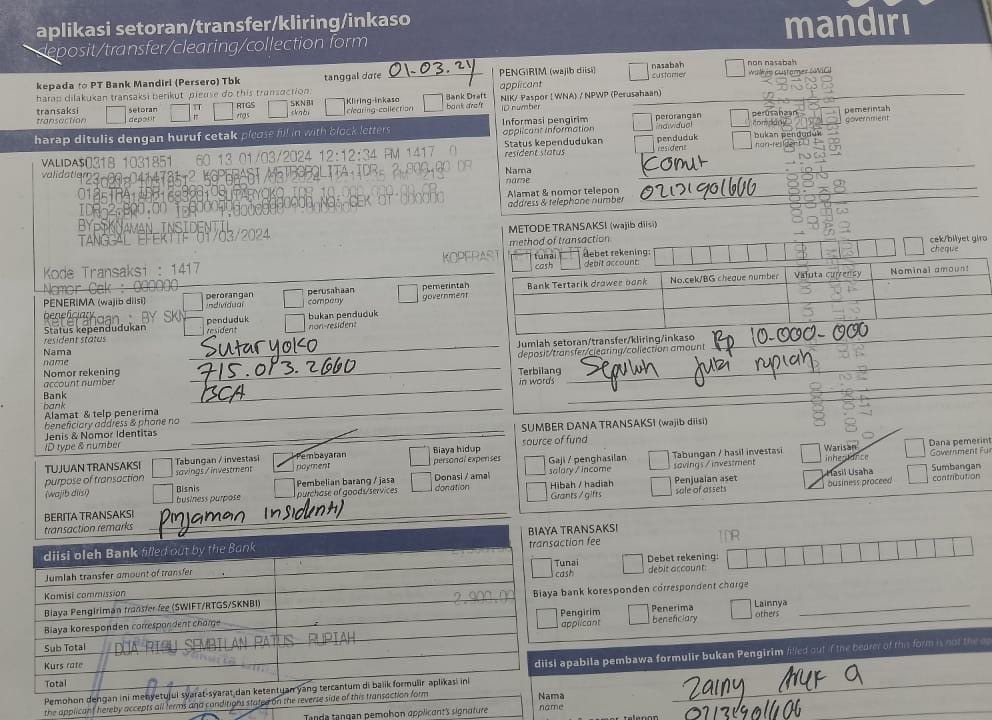 aplikasi setoran/transfer/kliring/inkaso
deposit/transfer/clearing/collection form
mandiri
kepada to PT Bank Mandiri (Persero) Tbk
tanggal date 01-03.24
harap dilakukan transaksi berikut please do this transaction:
transaksi transaction
setoran deposit
TT tt
RTGS rtgs
SKNBI sknbi
Kliring-inkaso clearing-collection
Bank Draft bank draft
harap ditulis dengan huruf cetak please fill in with block letters
VALIDASI
validation
0318 1031851 60 13 01/03/2024 12:12:34 PM 1417 0
BY PINJAMAN INSIDENTIL
TANGGAL EFEKTIF 01/03/2024
Kode Transaksi : 1417
Nomor Cek : 000000
Keterangan : BY SKN
PENERIMA (wajib diisi)
beneficiary
perorangan individual
perusahaan company
pemerintah government
Status kependudukan
resident status
penduduk resident
bukan penduduk non-resident
Nama
name
Sutaryoko
Nomor rekening
account number
715.013.2660
Bank
bank
BCA
Alamat & telp penerima
beneficiary address & phone no
Jenis & Nomor Identitas
ID type & number
TUJUAN TRANSAKSI
purpose of transaction
(wajib diisi)
Tabungan / investasi savings / investment
Pembayaran payment
Biaya hidup personal expenses
Bisnis business purpose
Pembelian barang / jasa purchase of goods/services
Donasi / amal donation
BERITA TRANSAKSI
transaction remarks
Pinjaman Insidentil
diisi oleh Bank filled out by the Bank
Jumlah transfer amount of transfer
Komisi commission
Biaya Pengiriman transfer fee (SWIFT/RTGS/SKNBI)
2.900.00
Biaya koresponden correspondent charge
Sub Total
DUA RIBU SEMBILAN RATUS RUPIAH
Kurs rate
Total
Pemohon dengan ini menyetujui syarat-syarat dan ketentuan yang tercantum di balik formulir aplikasi ini
the applicant hereby accepts all terms and conditions stated on the reverse side of this transaction form
Tanda tangan pemohon applicant's signature
PENGIRIM (wajib diisi)
applicant
nasabah customer
non nasabah walk in customer (WIC)
NIK/ Paspor (WNA) / NPWP (Perusahaan)
ID number
Informasi pengirim
applicant information
perorangan individual
perusahaan company
pemerintah government
Status kependudukan
resident status
penduduk resident
bukan penduduk non-resident
Nama
name
Komut
Alamat & nomor telepon
address & telephone number
02131901666
METODE TRANSAKSI (wajib diisi)
method of transaction
tunai cash
debet rekening: debit account:
cek/bilyet giro cheque
Bank Tertarik drawee bank
No.cek/BG cheque number
Valuta currency
Nominal amount
Jumlah setoran/transfer/kliring/inkaso
deposit/transfer/clearing/collection amount
Rp 10.000.000
Terbilang
in words
Sepuluh juta rupiah
SUMBER DANA TRANSAKSI (wajib diisi)
source of fund
Gaji / penghasilan salary / income
Tabungan / hasil investasi savings / investment
Warisan inheritance
Hibah / hadiah Grants / gifts
Penjualan aset sale of assets
Hasil Usaha business proceed
Sumbangan contribution
BIAYA TRANSAKSI
transaction fee
IDR
Tunai cash
Debet rekening: debit account:
Biaya bank koresponden correspondent charge
Pengirim applicant
Penerima beneficiary
Lainnya others
diisi apabila pembawa formulir bukan Pengirim filled out if the bearer of this form is not the
Nama
name
Zainy